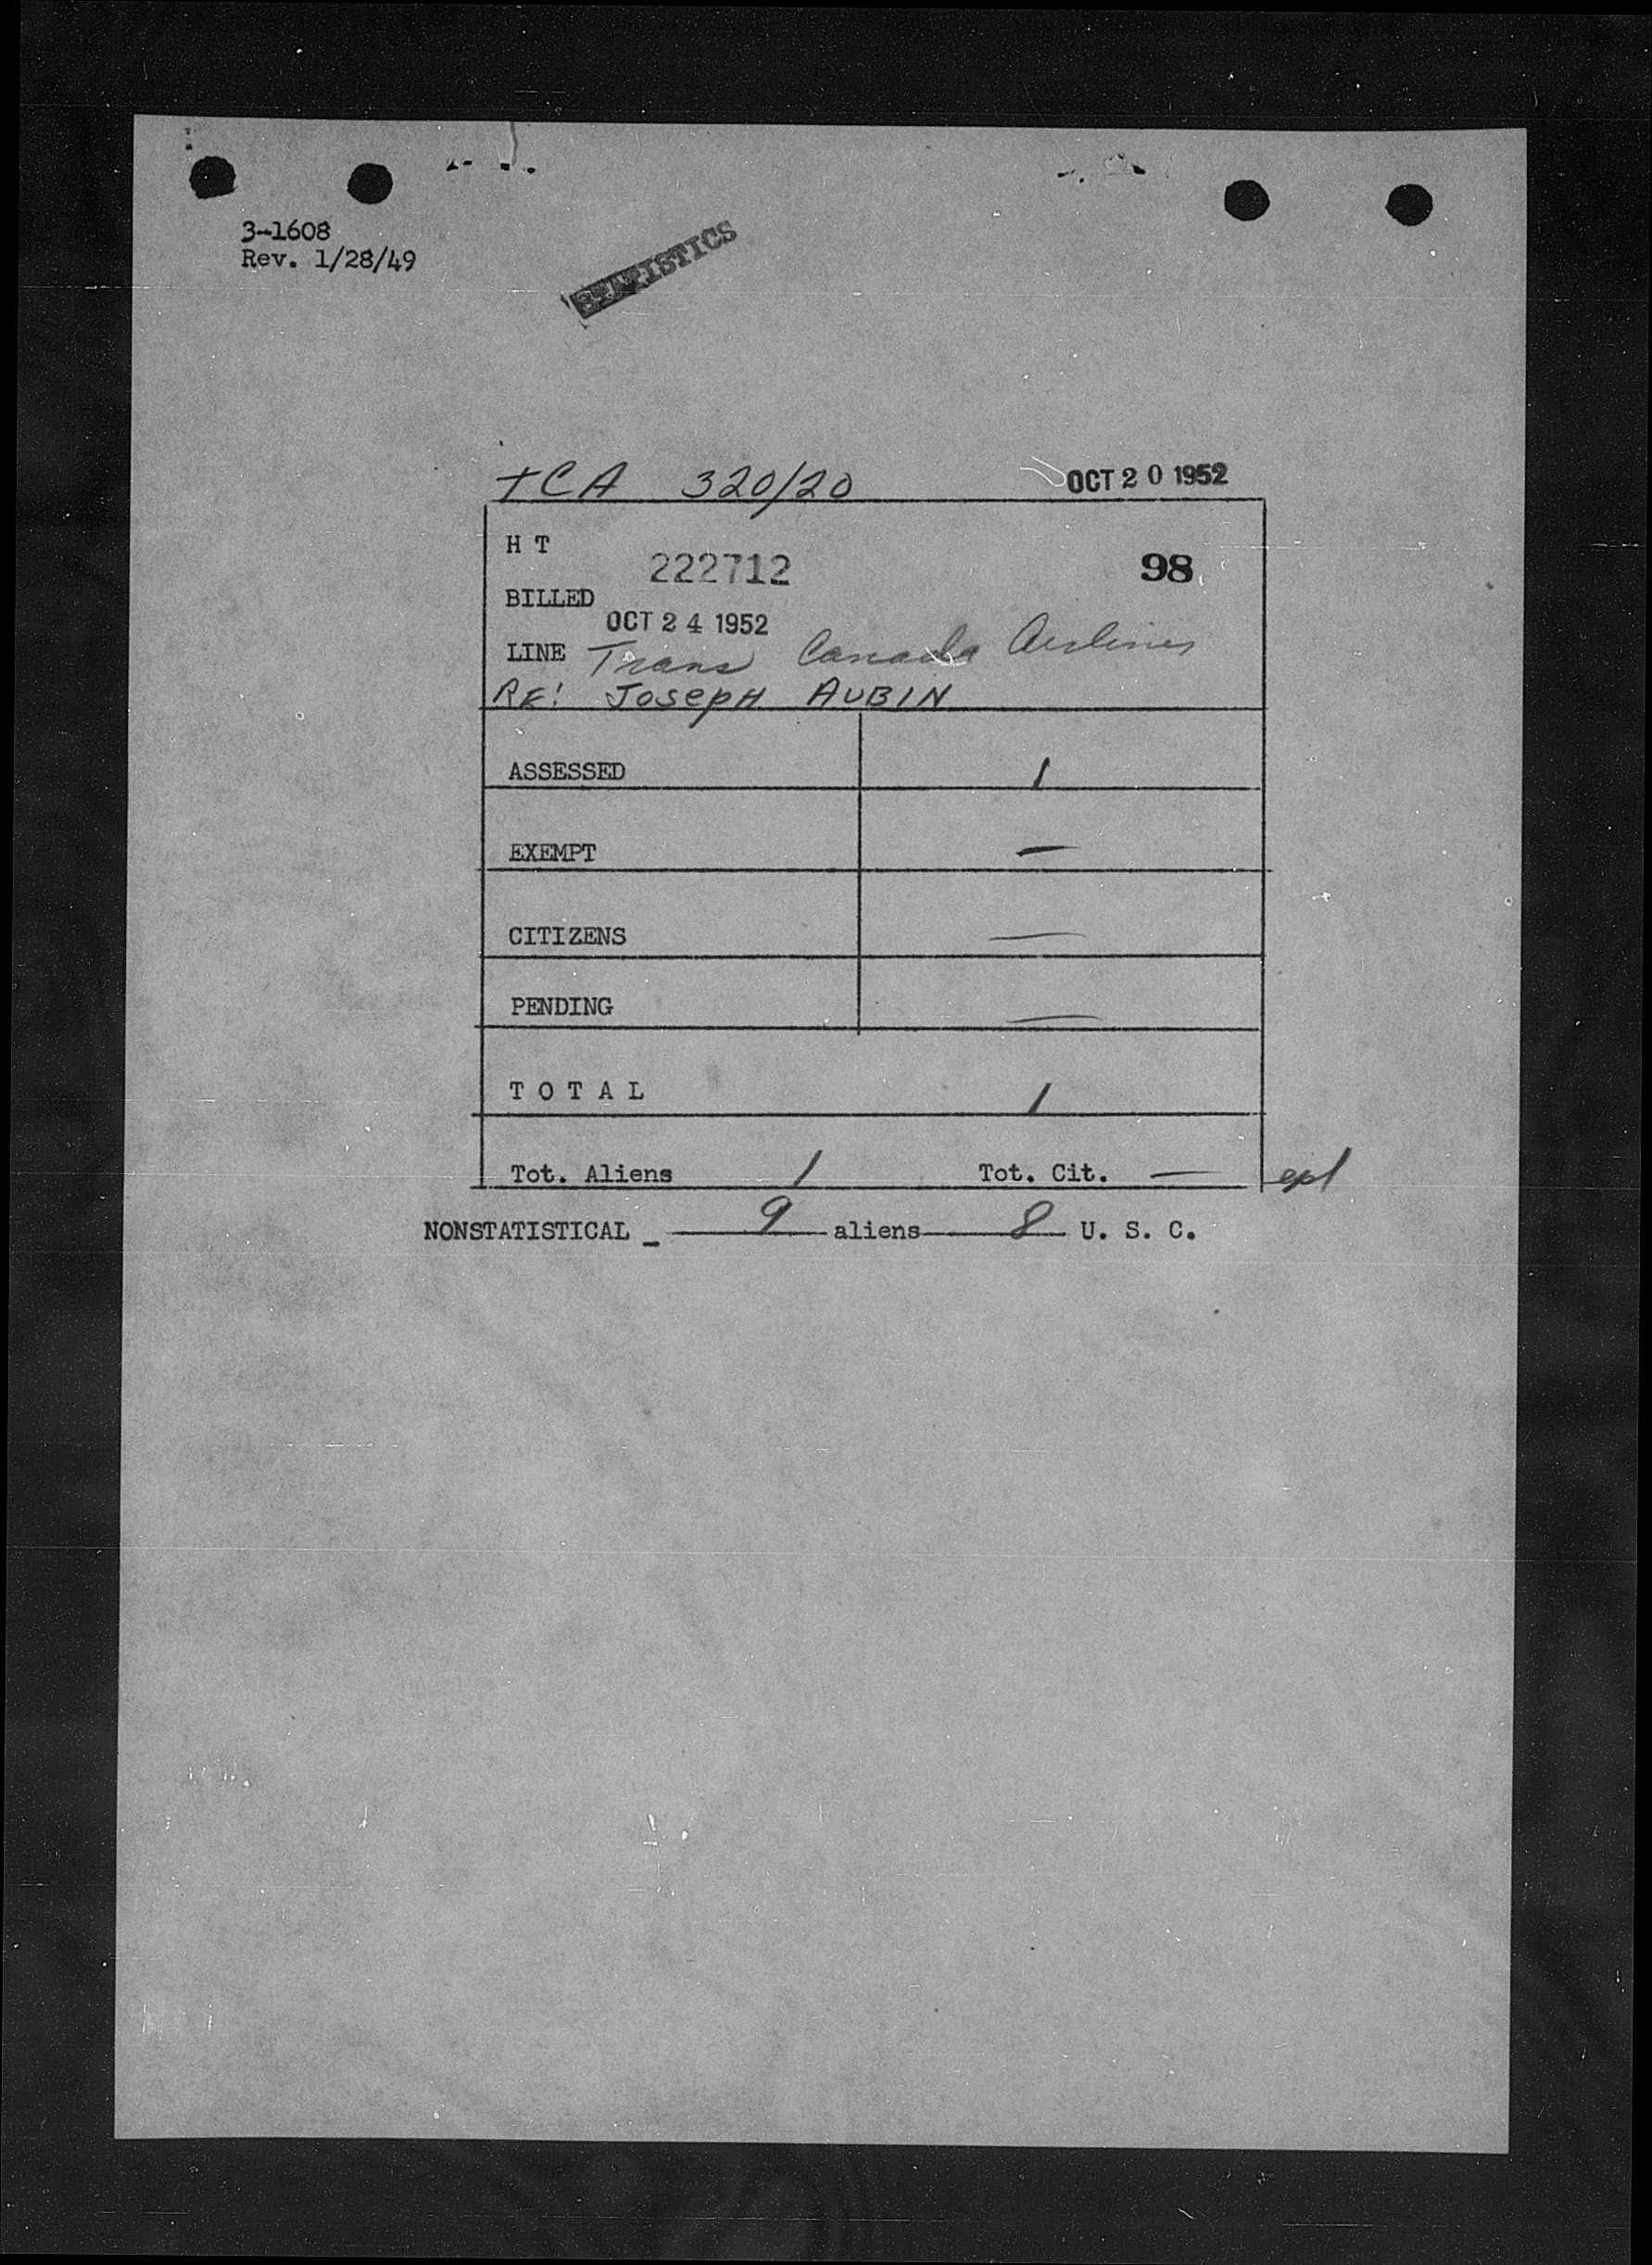 3-1608
Rev. 1/28/49
STATISTICS
TCA 320/20 OCT 20 1952
H T
222712 98
BILLED
OCT 24 1952
LINE Trans Canada Airlines
RE: Joseph AUBIN
ASSESSED 1
EXEMPT —
CITIZENS —
PENDING —
T O T A L 1
Tot. Aliens 1 Tot. Cit. —
NONSTATISTICAL _ 9 aliens 8 U. S. C.